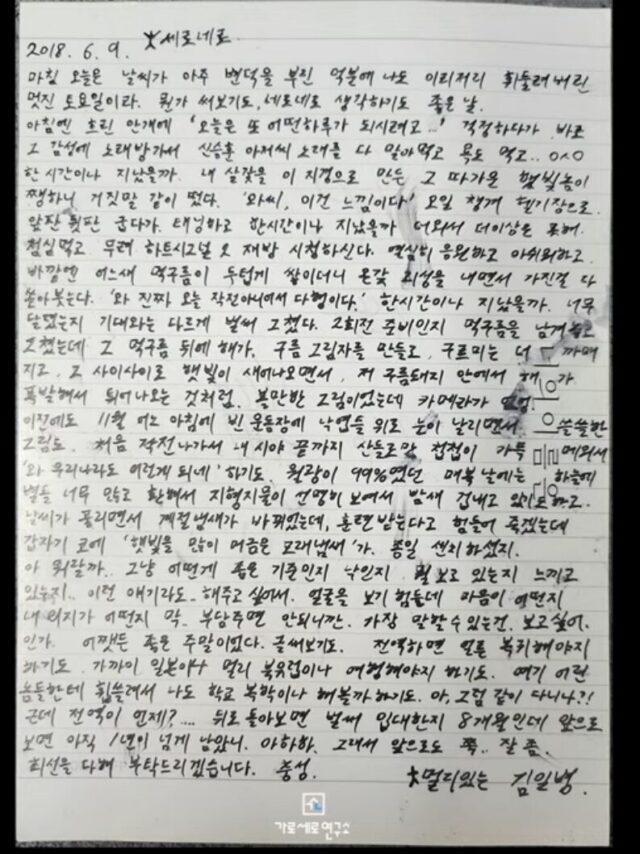 2018. 6. 9. *세로네로
마침 오늘은 날씨가 아주 변덕을 부린 덕분에 나도 이리저리 휘둘려버린
멋진 토요일이라. 뭔가 써보기도, 네로네로 생각하기도 좋은 날.
아침엔 흐린 안개에 '오늘은 또 어떤하루가 되시려고...' 걱정하다가 바로
그 감성에 노래방가서 신승훈 아저씨 노래를 다 말아먹고 욕도 먹고.. ㅇㅅㅇ
한시간이나 지났을까. 내 살갗을 이 지경으로 만든 그 따가운 햇빛놈이
쨍하니 거짓말 같이 떴다. '와씨, 이건 느낌이다' 오일 챙겨 헬기장으로.
앞판 뒷판 굽다가. 태닝하고 한시간이나 지났을까 더워서 더이상은 못해.
점심먹고 무려 하트시그널 2 재방 시청하신다. 열심히 응원하고 아쉬워하고.
바깥엔 어느새 먹구름이 두텁게 쌓이더니 온갖 괴성을 내면서 가진걸 다
쏟아붓는다. '와 진짜 오늘 작전아니여서 다행이다.' 한시간이나 지났을까. 너무
달랬는지 기대와는 다르게 벌써 그쳤다. 2회전 준비인지 먹구름을 남겨놓고
그쳤는데 그 먹구름 뒤에 해가. 구름 그림자를 만들고, 구르미는 더 까매
지고, 그 사이사이로 햇빛이 새어나오면서, 저 구름돼지 안에서 해가
폭발해서 튀어나오는 것처럼. 볼만한 그림이었는데 카메라가 없엉
이전에도 11월 어느 아침에 빈 운동장에 낙엽들 위로 눈이 날리면서 쓸쓸한
그림도. 처음 작전나가서 내 시야 끝까지 산들로만 첩첩이 가득 메워서
'와 우리나라도 이렇게 되네' 하기도. 월광이 99%였던 매복 날에는 하늘에
별들 너무 많고 환해서 지형지물이 선명히 보여서 밤새 겁내고 있기도하고.
날씨가 풀리면서 계절냄새가 바뀌었는데, 훈련받는다고 힘들어 죽겠는데
갑자기 코에 '햇빛을 많이 머금은 모래냄새'가. 종일 센치하셨지.
아 뭐랄까.. 그냥 어떻게 좋은 기준인지 낙인지 뭘 보고 있는지 느끼고
있는지.. 이런 얘기라도.. 해주고 싶어서. 얼굴을 보기 힘든데 마음이 어떤지
내 의지가 어떤지 막.. 부담주면 안되니깐. 가장 말할 수 있는건. 보고싶어.
인가. 어쨌든 좋은 주말이었다. 글써보기도. 전역하면 얼른 복귀해야지
하기도. 가까이 일본이나 멀리 북유럽이나 여행해야지 하기도. 여기 어린
놈들한테 휩쓸려서 나도 학교 복학이나 해볼까하기도. 아, 그럼 같이 다니나?!
근데 전역이 언제?.... 뒤로 돌아보면 벌써 입대한지 8개월인데 앞으로
보면 아직 1년이 넘게 남았니. 아하하. 그래서 앞으로도 쭉.. 잘 좀.
최선을 다해 부탁드리겠습니다. 충성.
*멀리있는 김일병.
가로세로연구소